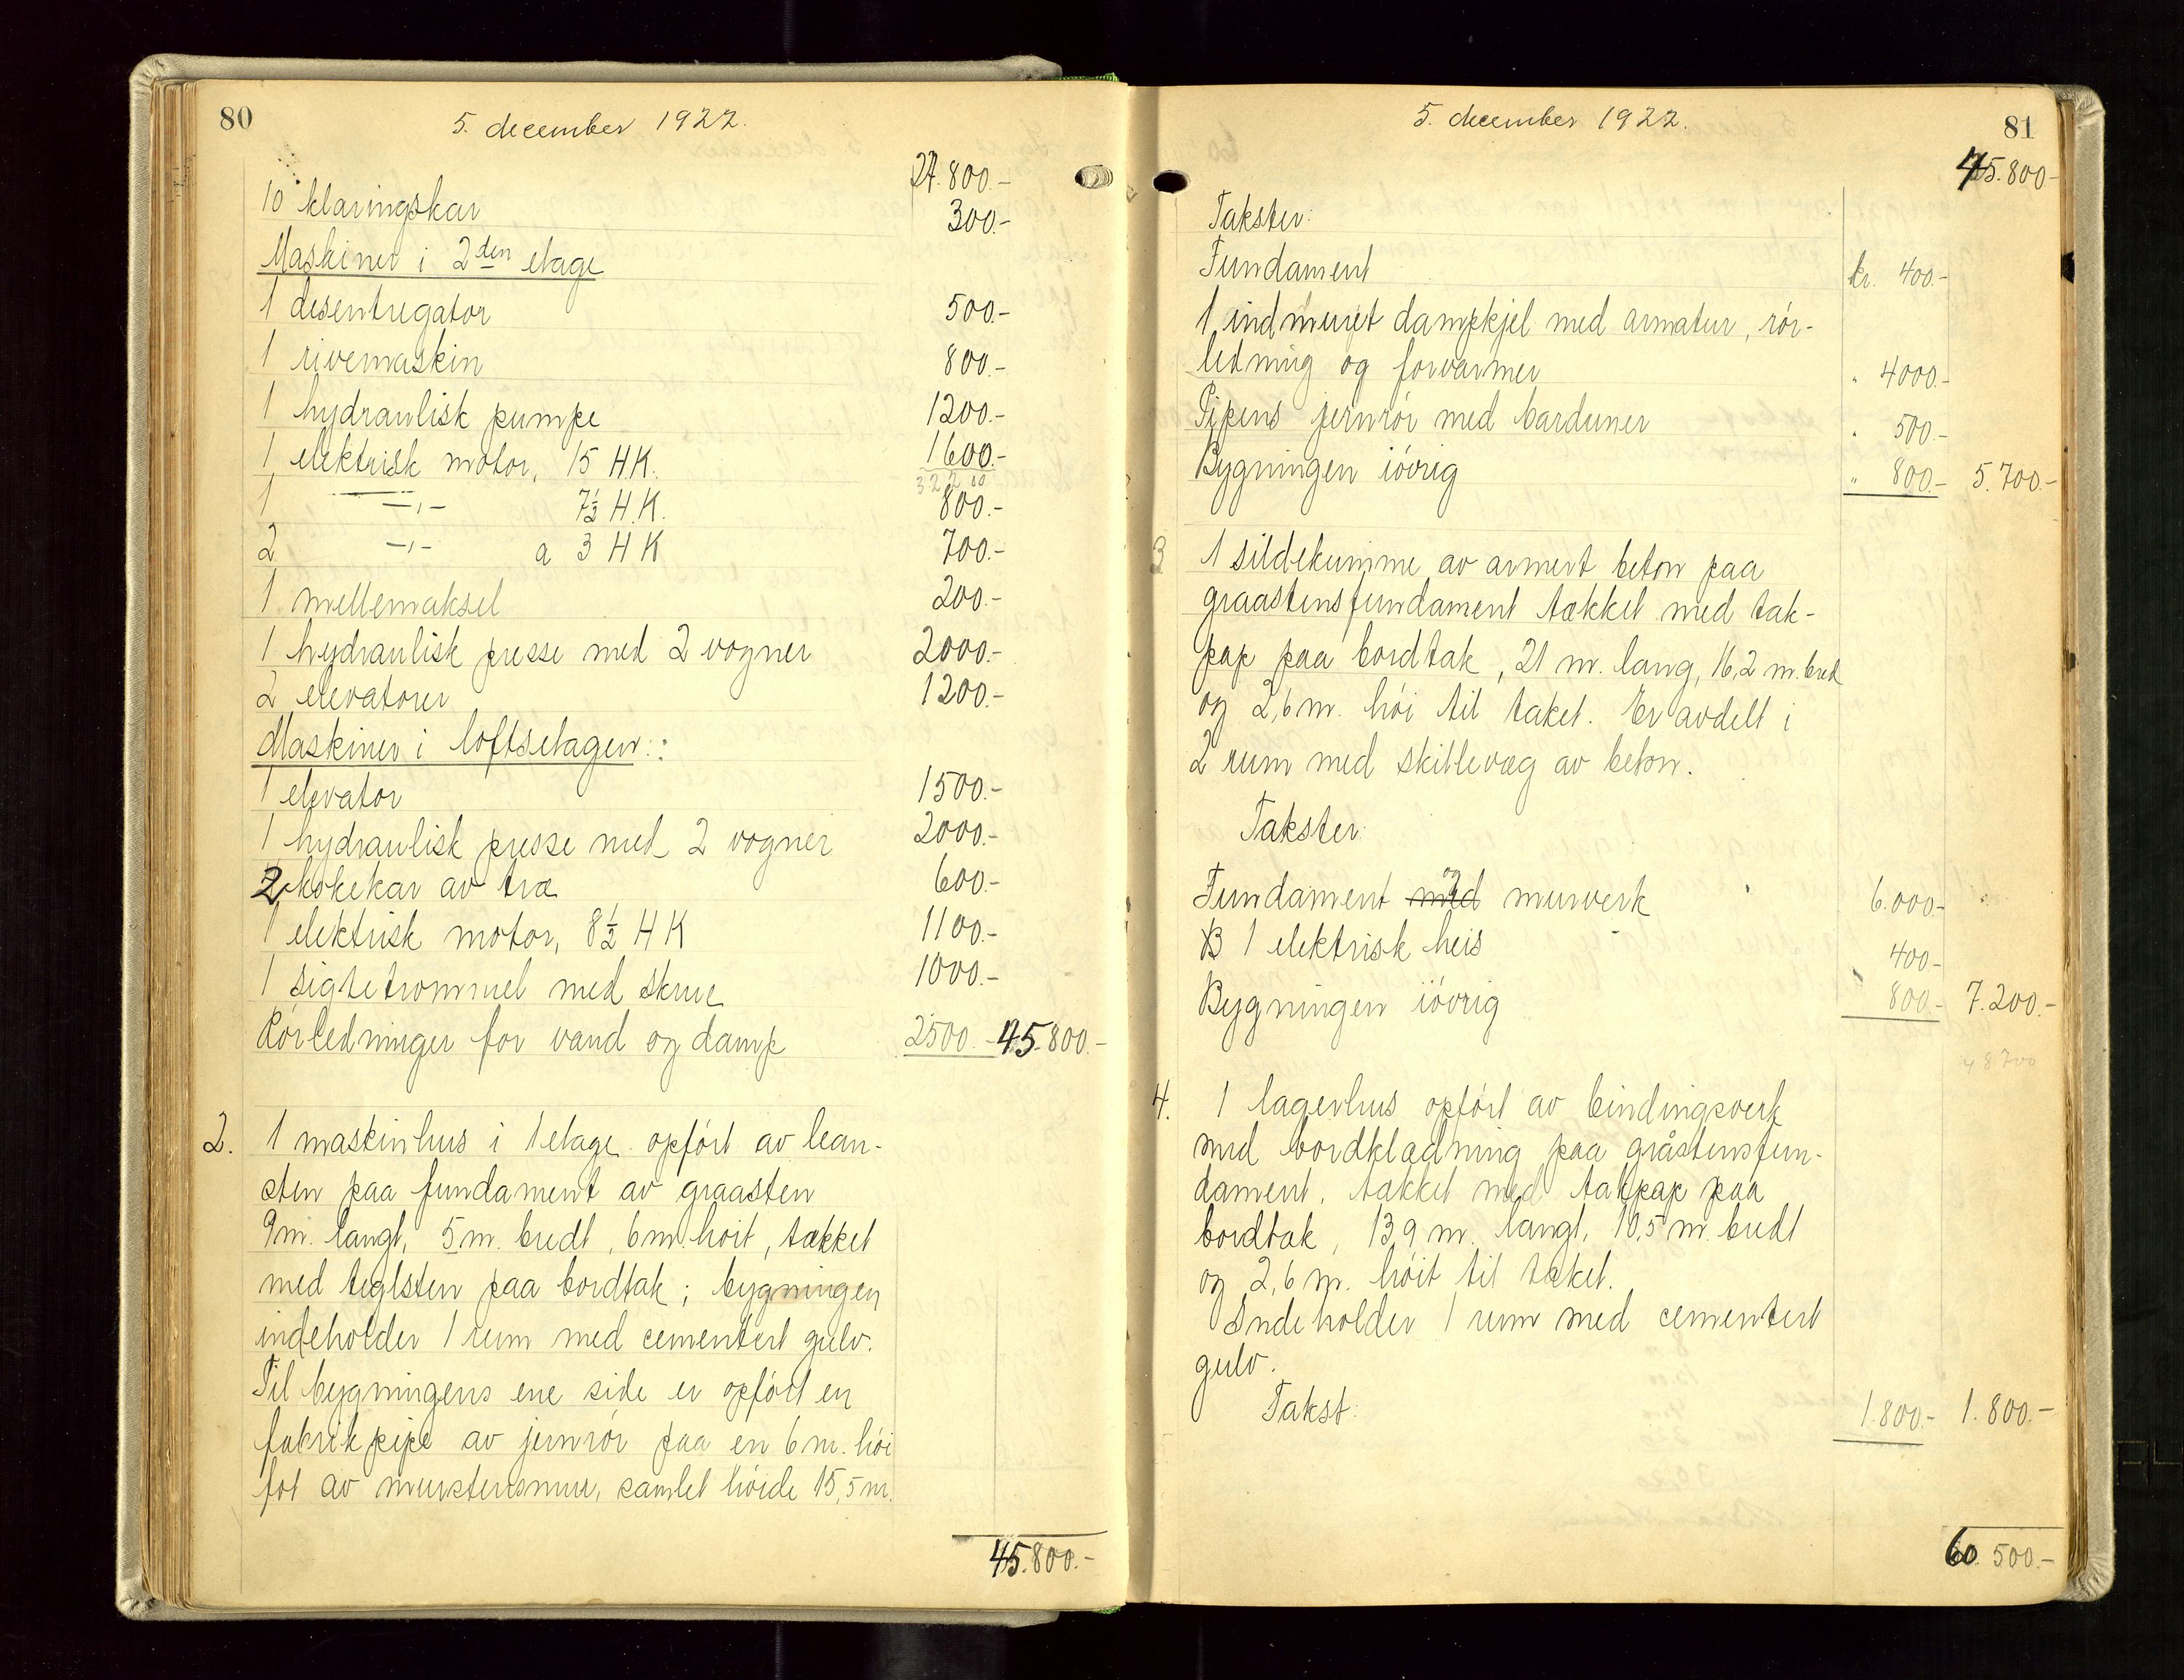 80
5. december 1922.
27.800.-
10 klaringskar 300.-
Maskiner i 2den etage
1 desentregator 500.-
1 rivemaskin 800.-
1 hydraulisk pumpe 1200.-
1 elektrisk motor, 15 H.K. 1600.-
1 -„- 7½ H.K. 800.-
2 -„- a 3 H K 700.-
1 mellemaksel 200.-
1 hydraulisk presse med 2 vogner 2000.-
2 elevatorer 1200.-
Maskiner i loftsetagen:
1 elevator 1500.-
1 hydraulisk presse med 2 vogner 2000.-
2 kokekar av træ 600.-
1 elektrisk motor, 8½ H K 1100.-
1 sigtetrommel med skrue 1000.-
Rörledninger for vand og damp 2500.- 45.800.-
2. 1 maskinhus i 1 etage opført av lean-
sten paa fundament av graasten
9m. langt, 5 m. bredt, 6 m. høit, tækket
med teglsten paa bordtak; bygningen
indeholder 1 rum med cementert gulv.
Til bygningens ene side er opført en
fabrikpipe av jernrör paa en 6 m. höi
fot av murstensmur, samlet höide 15,5 m.
45.800.-
5. december 1922.
81
45.800.-
Takster:
Fundament kr. 400.-
1 indmuret dampkjel med armatur, rör-
ledning og forvarmer " 4000.-
Pipens jernrör med barduner " 500.-
Bygningen iövrig " 800.- 5.700.-
3 1 sildekumme av armert beton paa
graastensfundament tækket med tak-
pap paa bordtak, 21 m. lang, 16,2 m. bred
og 2,6 m. höi til taket. Er avdelt i
2 rum med skillevæg av beton.
Takster:
Fundament med og murverk 6.000.-
B 1 elektrisk heis 400.-
Bygningen iövrig 800.- 7.200.-
4. 1 lagerhus opfört av bindingsverk
med bordklædning paa gråstensfun-
dament, tækket med takpap paa
bordtak, 13,9 m. langt, 10,5 m. bredt
og 2,6 m. höit til taket.
Indeholder 1 rum med cementert
gulv.
Takst: 1.800.- 1.800.-
60.500.-